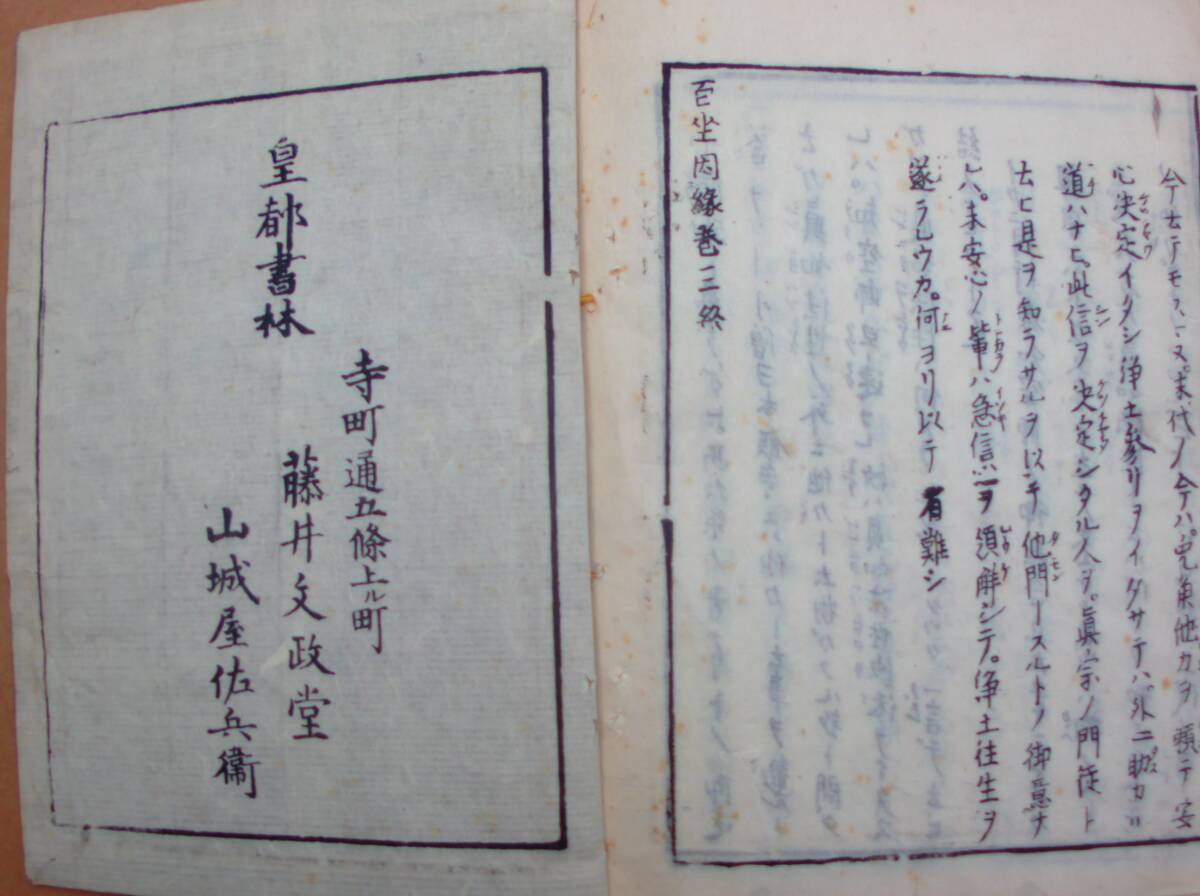 今云テモスマヌ末代ノ今ハ兎角他力ヲ頼テ安
心決定イタシ浄土參リヲイタサテハ外ニ助カル
道ハナヒ此信ヲ決定シタル人ヲ眞宗ノ門徒ト
云ヒ是ヲ知ラサルヲ以テ他門ースルトノ御意ナ
レハ。未安心ノ輩ハ急信心ヲ領解シテ。浄土往生ヲ
遂ラレウカ。何ヨリ以テ有難シ
百坐因縁巻三終
皇都書林
寺町通五條上ル町
藤井文政堂
山城屋佐兵衞